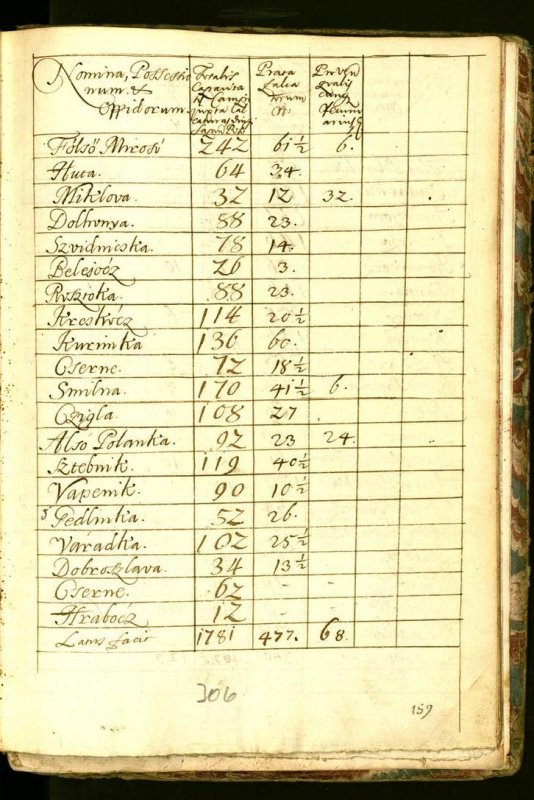 Nomina, Possessio
num. &
Oppidorum.
Prata
falca
torum
6.
Fölsö Mirosó 242 61½ 6.
Huta. 64 34.
Miklova. 32 12 32.
Dolhonya. 88 23.
Szvidnicska. 78 14.
Belejócz 26 3.
88 23.
114 20½
Kurimka 136 60.
Cserne. 72 18½
Smilna. 170 41½ 6.
Czigla. 108 27
Also Polanka. 92 23 24.
Sztebnik. 119 40½
Vapenik. 90 10½
Pedlinka. 52 26.
Váradka. 102 25½
Dobroszlava. 34 13½
Cserne. 62 - -
Hrabócz 12 - -
Latus facit 1781 477. 68.
306
159